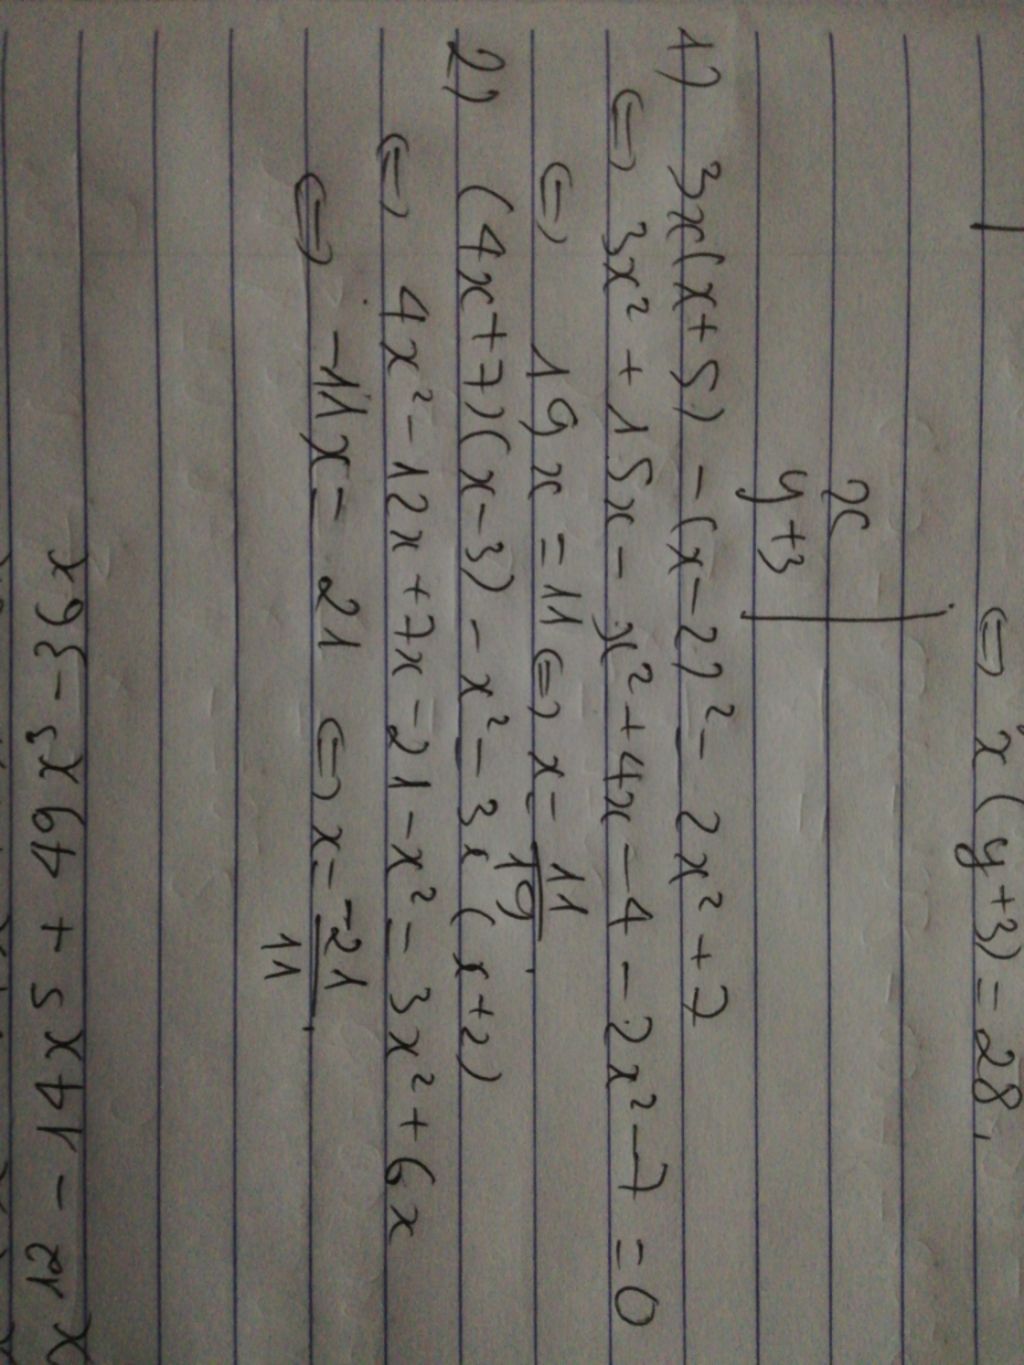 ⇔ x(y+3) = 28,
x
y+3
1) 3x(x+5) - (x-2)² = 2x² + 7
⇔ 3x² + 15x - x² + 4x - 4 - 2x² - 7 = 0
⇔ 19x = 11 ⇔ x = 11/19.
2) (4x+7)(x-3) - x² = 3x(x+2)
⇔ 4x² - 12x + 7x - 21 - x² = 3x² + 6x
⇔ -11x = 21 ⇔ x = -21/11.
x 12 - 14x5 + 49x³ - 36x